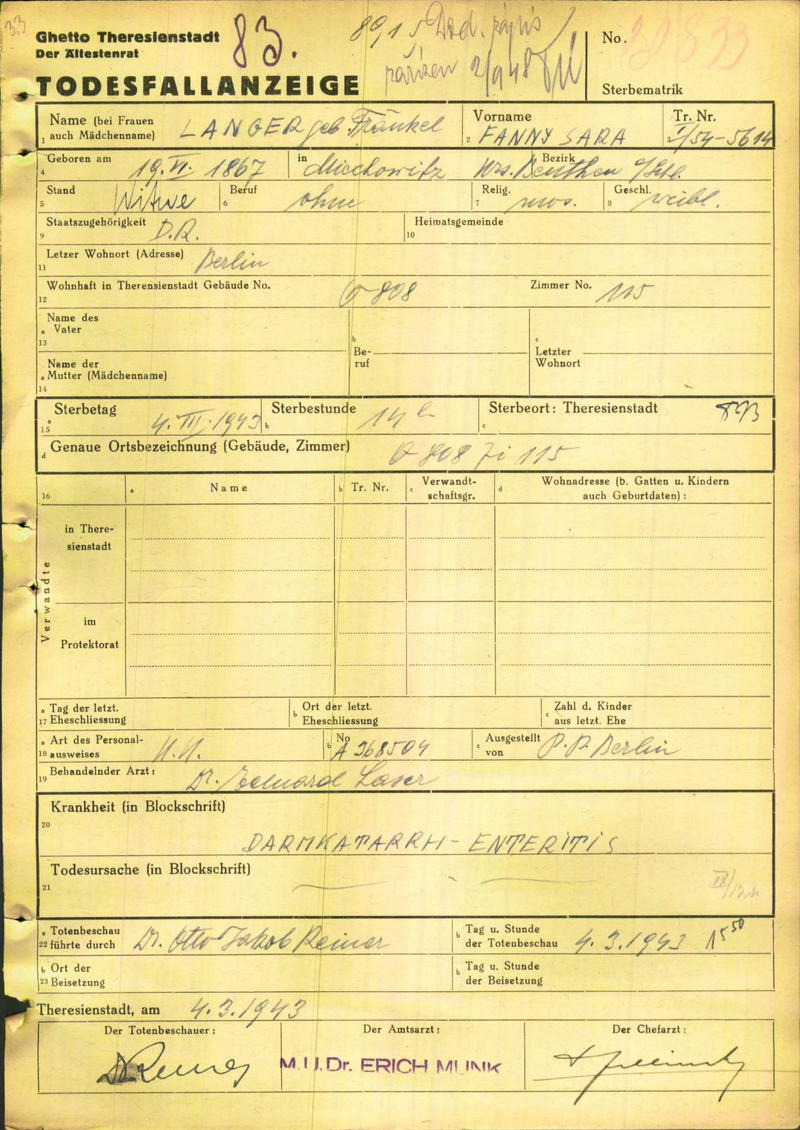 33
Ghetto Theresienstadt
Der Ältestenrat
83.
8915
2/948
No.
Sterbematrik
TODESFALLANZEIGE
Name (bei Frauen
1 auch Mädchenname)
LANGER geb. Fränkel
Vorname
2 FANNY SARA
Tr. Nr.
I/54-5614
Geboren am
4
19. VI. 1867
in
Miechowitz
Bezirk
Beuthen
Stand
5
Witwe
Beruf
6
ohne
Relig.
7
mos.
Geschl.
8
weibl.
Staatszugehörigkeit
9
D.R.
Heimatsgemeinde
10
Letzer Wohnort (Adresse)
11
Berlin
Wohnhaft in Theresienstadt Gebäude No.
12
Q 808
Zimmer No.
115
Name des
a Vater
13
b
Be-
ruf
c
Letzter
Wohnort
Name der
a Mutter (Mädchenname)
14
a
15
Sterbetag
4. III. 1943
b
Sterbestunde
14 h
c
Sterbeort: Theresienstadt
893
d
Genaue Ortsbezeichnung (Gebäude, Zimmer)
Q 808 Zi 115
16
a Name
b Tr. Nr.
c Verwandt-
schaftsgr.
d
Wohnadresse (b. Gatten u. Kindern
auch Geburtdaten) :
Verwandte
in There-
sienstadt
im
Protektorat
a Tag der letzt.
17 Eheschliessung
b Ort der letzt.
Eheschliessung
c Zahl d. Kinder
aus letzt. Ehe
a Art des Personal-
18 ausweises
b No
A 368504
c Ausgestellt
von
P.P. Berlin
19 Behandelnder Arzt:
Dr. Eduard Laser
Krankheit (in Blockschrift)
20
DARMKATARRH - ENTERITIS
Todesursache (in Blockschrift)
21
a Totenbeschau
22 führte durch
Dr. Otto Jakob Reiner
b Tag u. Stunde
der Totenbeschau
4.3.1943 15 50
b Ort der
23 Beisetzung
b Tag u. Stunde
der Beisetzung
Theresienstadt, am 4.3.1943
Der Totenbeschauer:
Der Amtsarzt:
Der Chefarzt:
Dr Reiner
M.U.Dr. ERICH MUNK